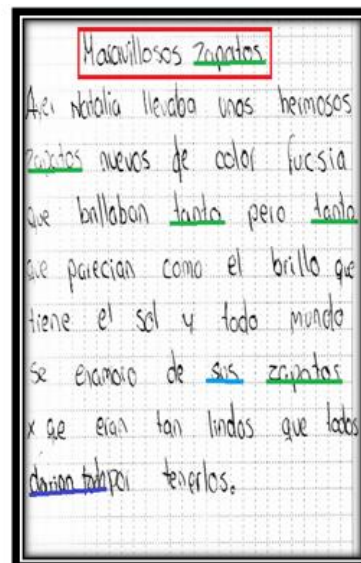 Maravillosos zapatos
Ayer Natalia llevaba unos hermosos
zapatos nuevos de color fucsia
que brillaban tanto pero tanto
que parecian como el brillo que
tiene el sol y todo mundo
se enamoro de sus zapatos
x que eran tan lindos que todos
darian todo por tenerlos.